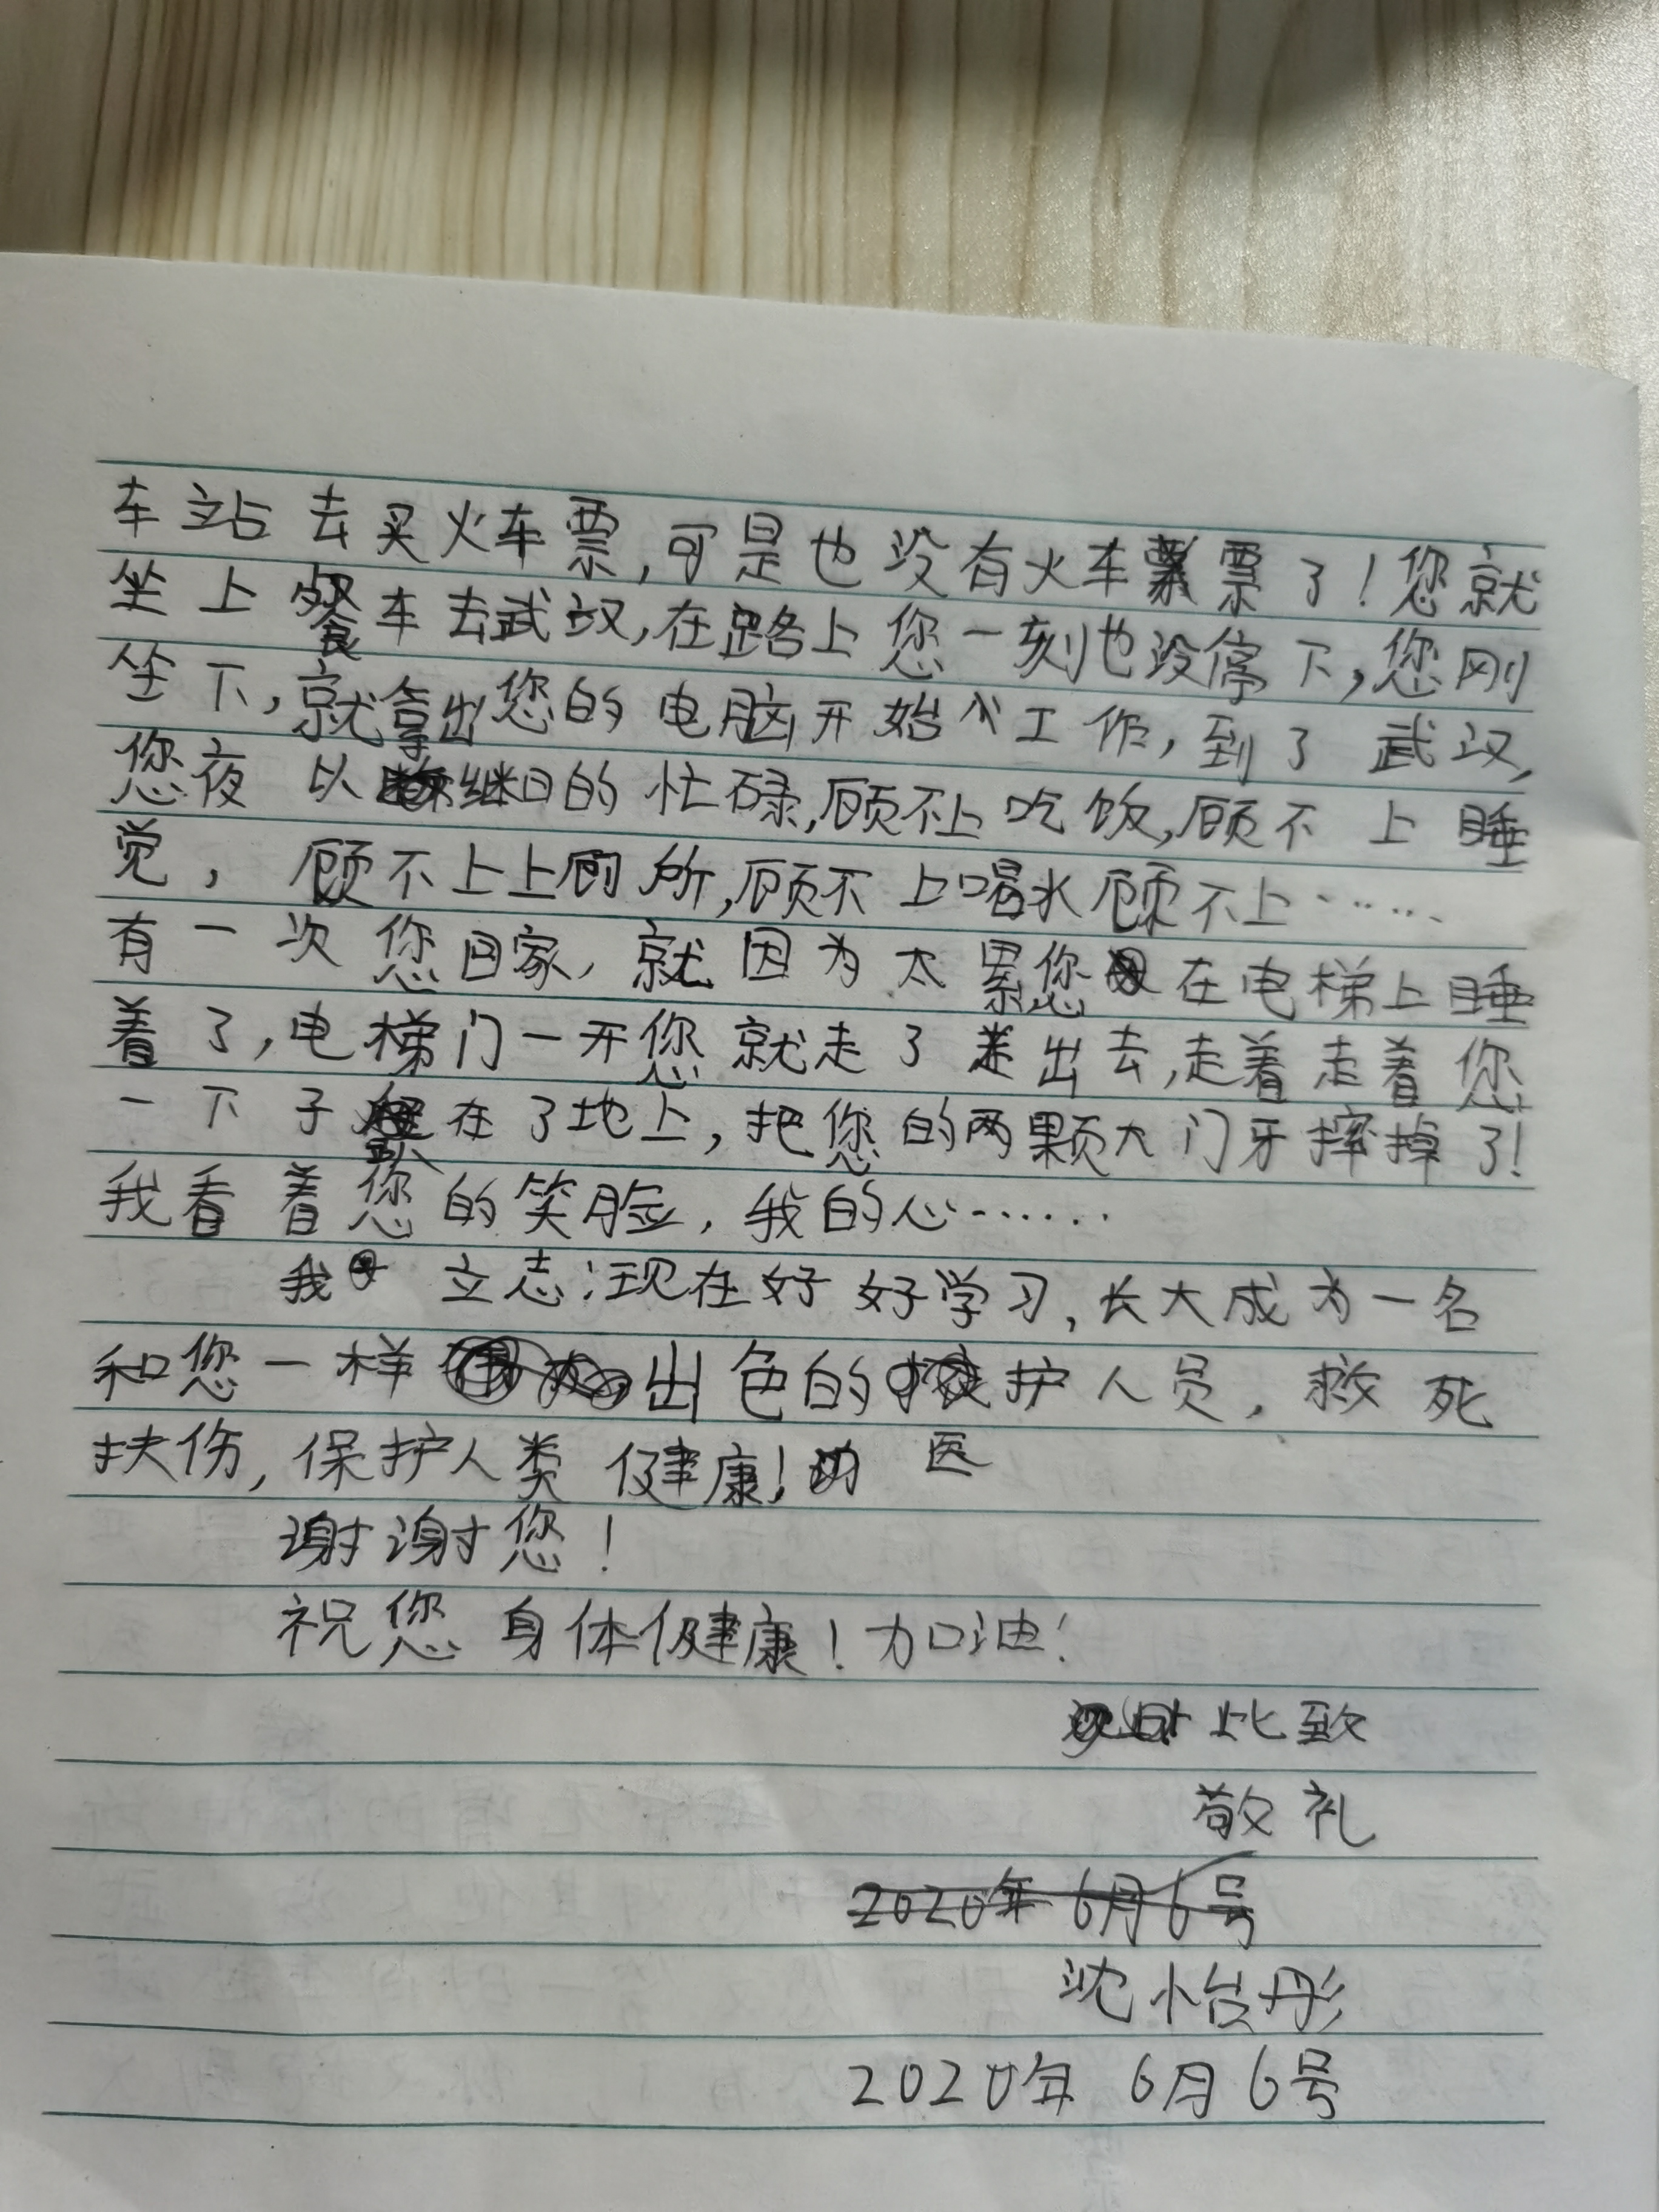 车站去买火车票,可是也没有火车票了!您就
坐上餐车去武汉,在路上您一刻也没停下,您刚
坐下,就拿出您的电脑开始工作,到了武汉,
您夜以继日的忙碌,顾不上吃饭,顾不上睡
觉,顾不上上厕所,顾不上喝水顾不上……
有一次您回家,就因为太累您在电梯上睡
着了,电梯门一开您就走了出去,走着走着您
一下子趴在了地上,把您的两颗大门牙摔掉了!
我看着您的笑脸,我的心……
我立志:现在好好学习,长大成为一名
和您一样出色的护人员,救死
扶伤,保护人类健康! 医
谢谢您!
祝您身体健康!加油!
此致
敬礼
2020年6月6号
沈怡彤
2020年6月6号